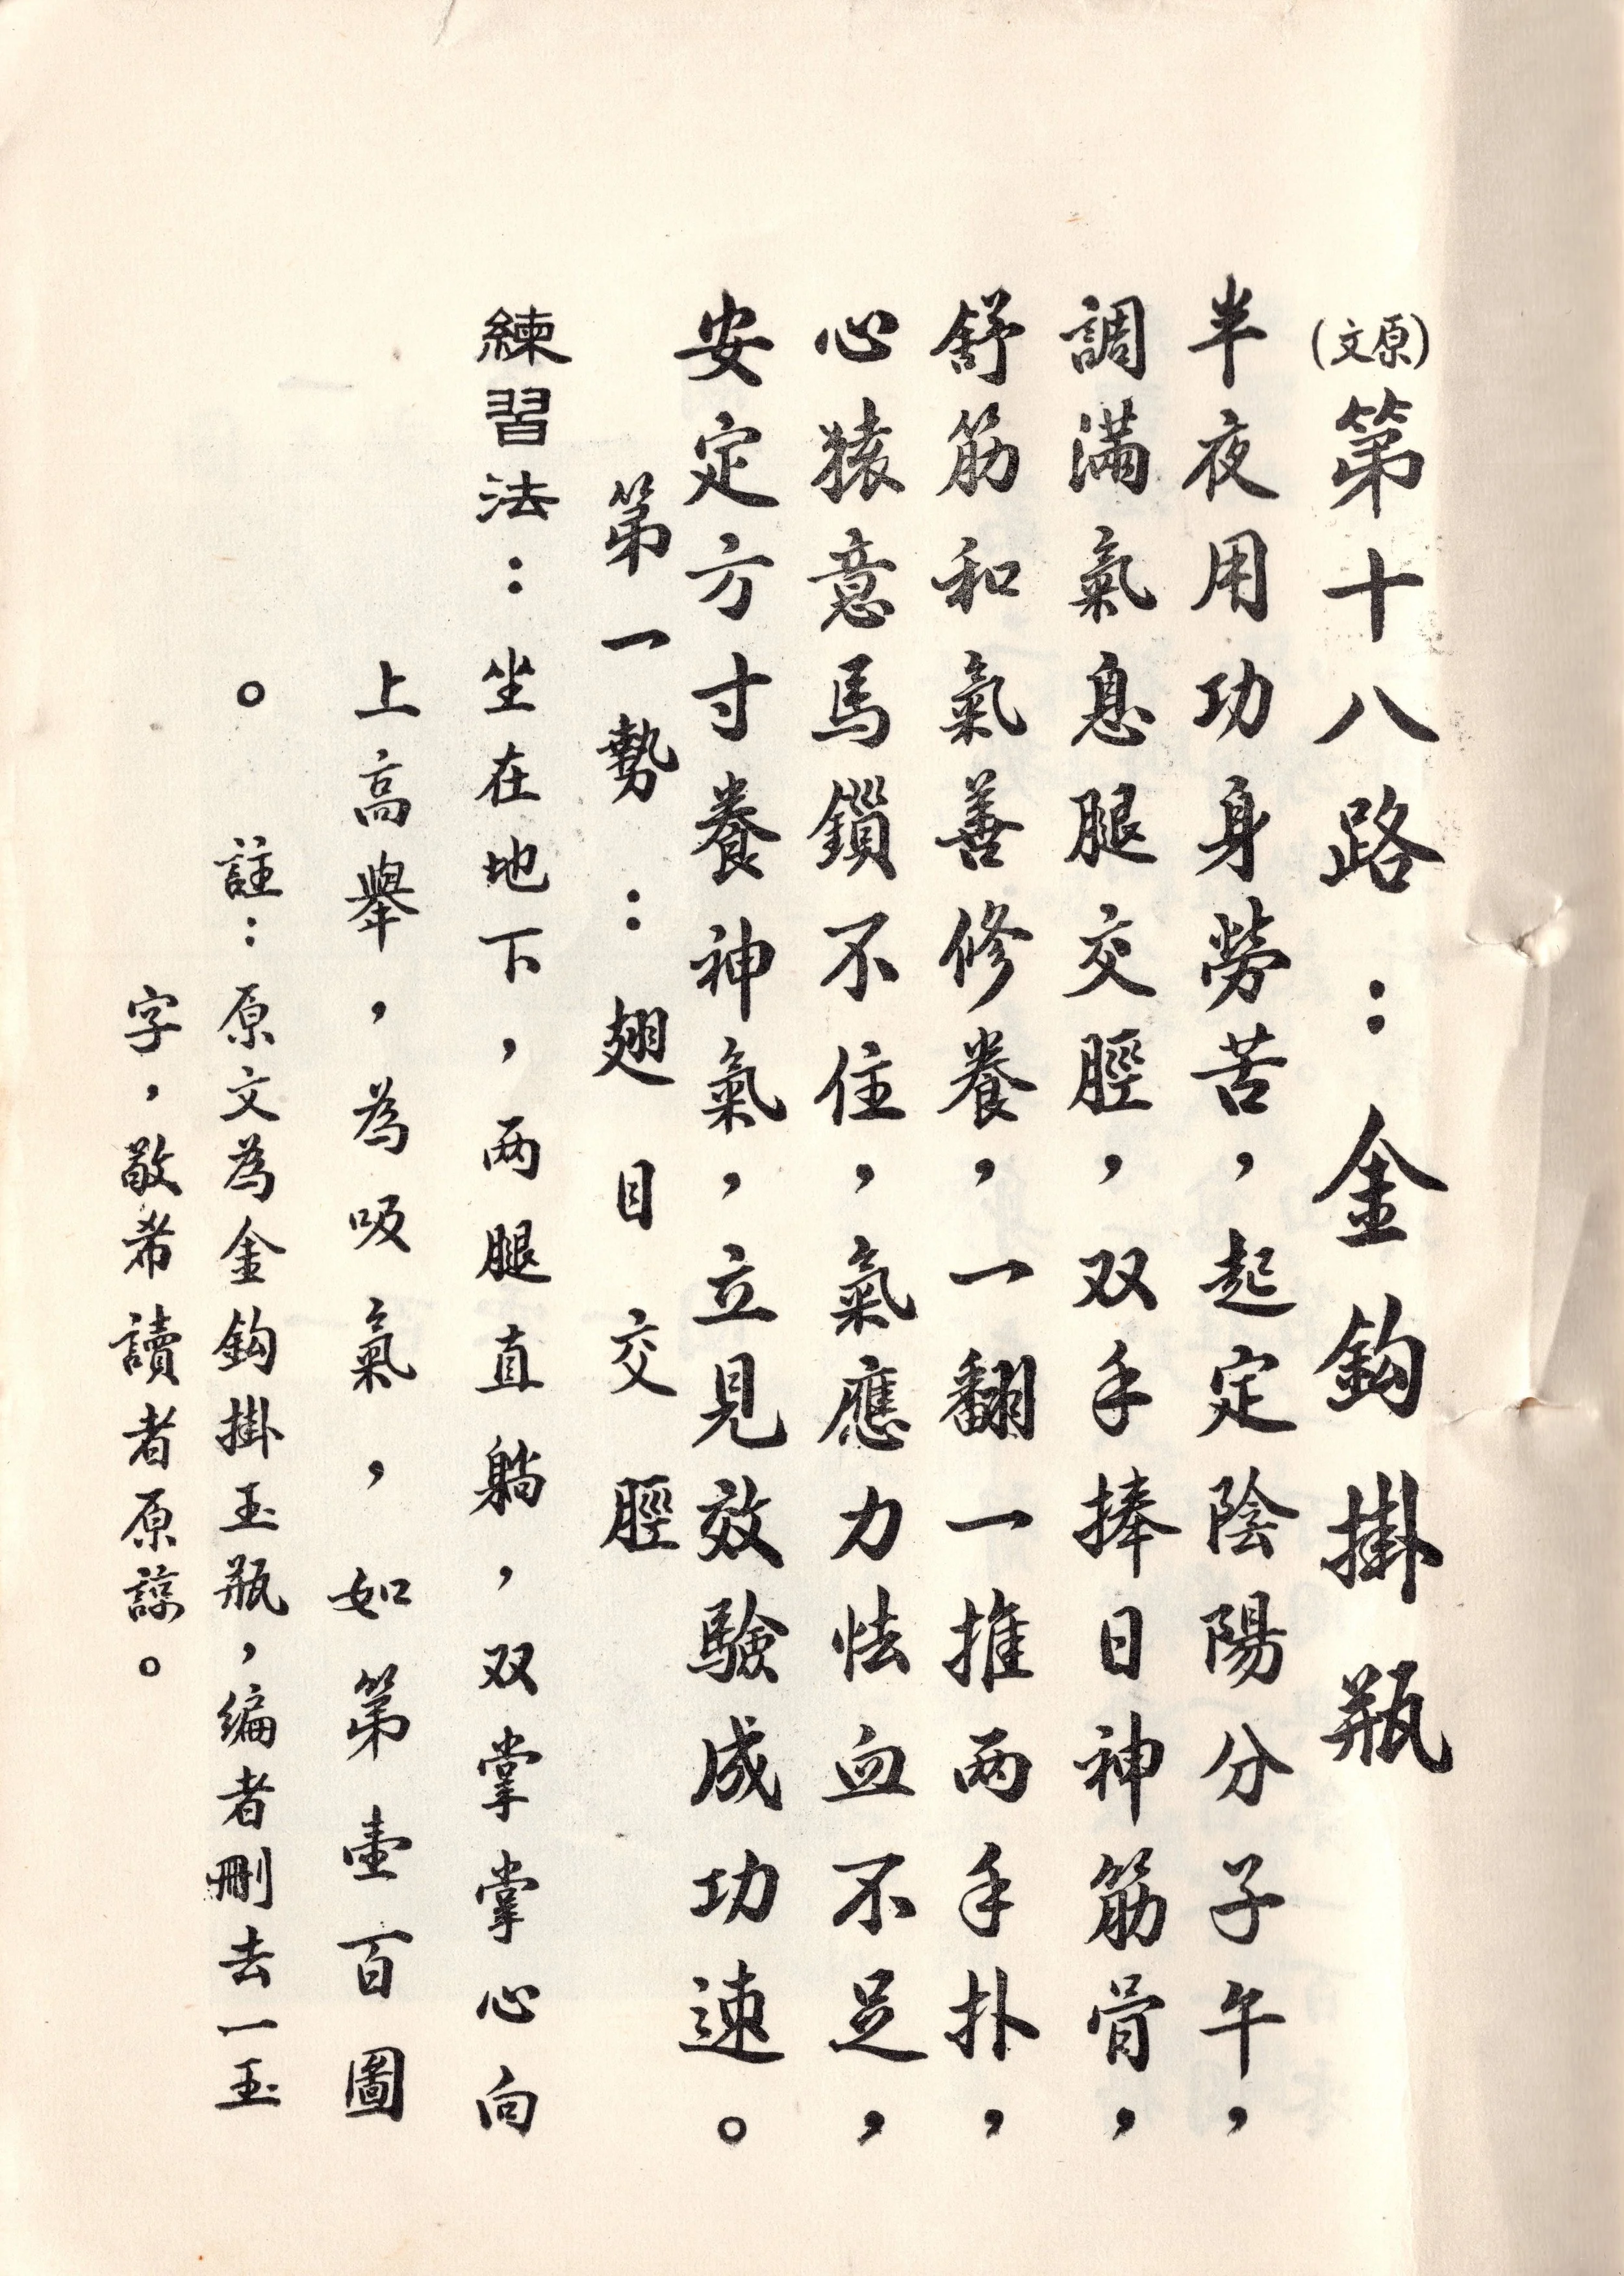 (原文)第十八路：金鈎掛瓶
半夜用功身勞苦，起定陰陽分子午，
調滿氣息腿交脛，双手捧日神筋骨，
舒筋和氣善修養，一翻一推兩手扑，
心猿意馬鎖不住，氣應力怯血不足，
安定方寸養神氣，立見效驗成功速。
第一勢：翅目交脛
練習法：坐在地下，两腿直躺，双掌掌心向
上高舉，為吸氣，如第壹百圖
。　註：原文為金鈎掛玉瓶，編者刪去一玉
字，敬希讀者原諒。